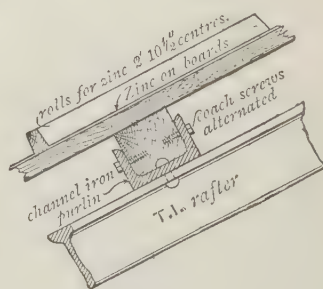 rolls for zinc 2' 10½" centres.
Zinc on boards
coach screws
alternated
channel iron
purlin
T.I. rafter